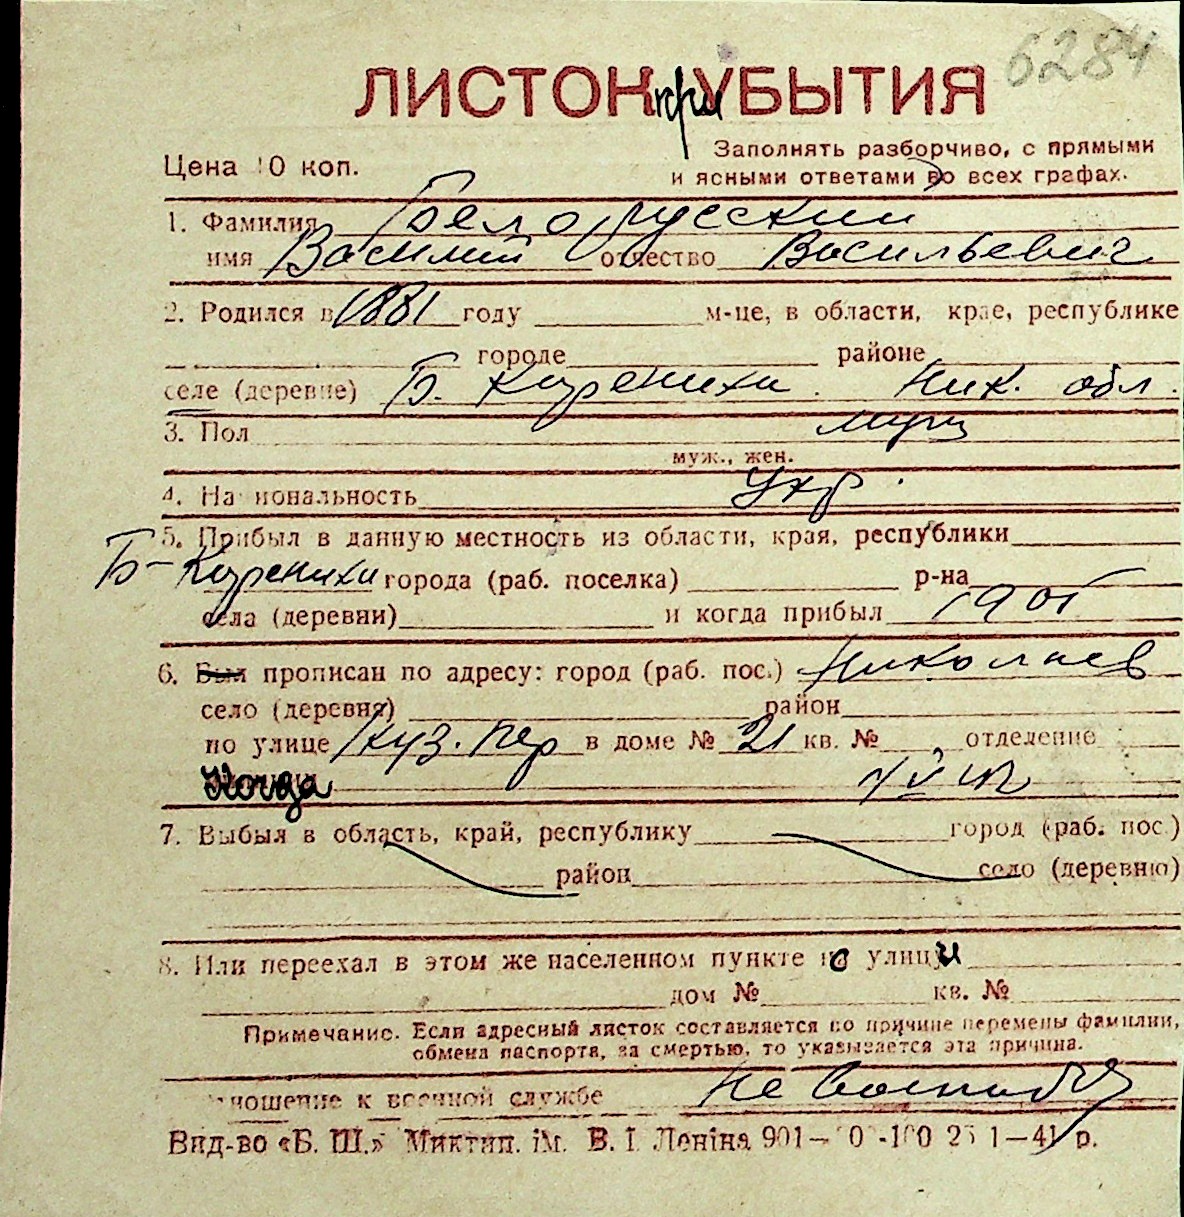 6284
ЛИСТОК при УБЫТИЯ
Цена 10 коп.
Заполнять разборчиво, с прямыми
и ясными ответами во всех графах.
1. Фамилия Белорусский
имя Василий отчество Васильевич
2. Родился в 1881 году м-це, в области, крае, республике
городе районе
селе (деревне) Б. Куренихи. Ник. обл.
3. Пол муж
муж., жен.
4. Национальность Укр.
5. Прибыл в данную местность из области, края, республики
Б-Куренихи города (раб. поселка) р-на
села (деревни) и когда прибыл 1905
6. Был прописан по адресу: город (раб. пос.) Николаев
село (деревня) район
по улице Куз. пер в доме № 21 кв. № , отделение
Когда
7. Выбыл в область, край, республику город (раб. пос.)
район село (деревню)
8. Или переехал в этом же населенном пункте с улицы
дом № кв. №
Примечание. Если адресный листок составляется по причине перемены фамилии,
обмена паспорта, за смертью, то указывается эта причина.
отношение к военной службе Не военнообяз
Вид-во «Б. Ш.» Миктип. ім. В. І. Леніна 1—41 р.